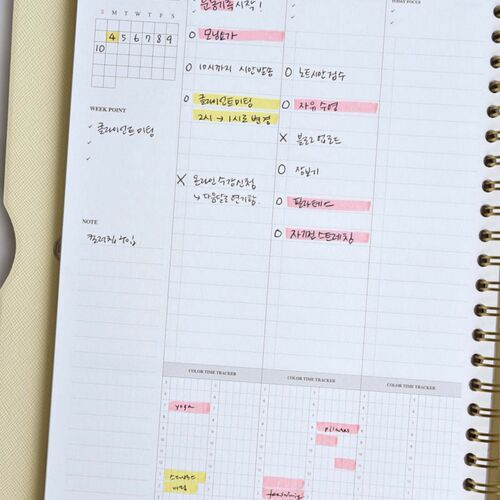 TODAY FOCUS
S M T W T F S
4 5 6 7 8 9
10
WEEK POINT
클라이언트 미팅
NOTE
시작!
O 모닝요가
O 10시까지 시안발송
O 클라이언트 미팅
2시 → 1시로 변경
X 온라인 수강신청
↳ 다음달로 연기함.
O 노트시안 검수
O 자유수영
X 블로그 업로드
O 장보기
O 필라테스
O 자기전 스트레칭
COLOR TIME TRACKER
COLOR TIME TRACKER
COLOR TIME TRACKER
yoga
미팅
pilates